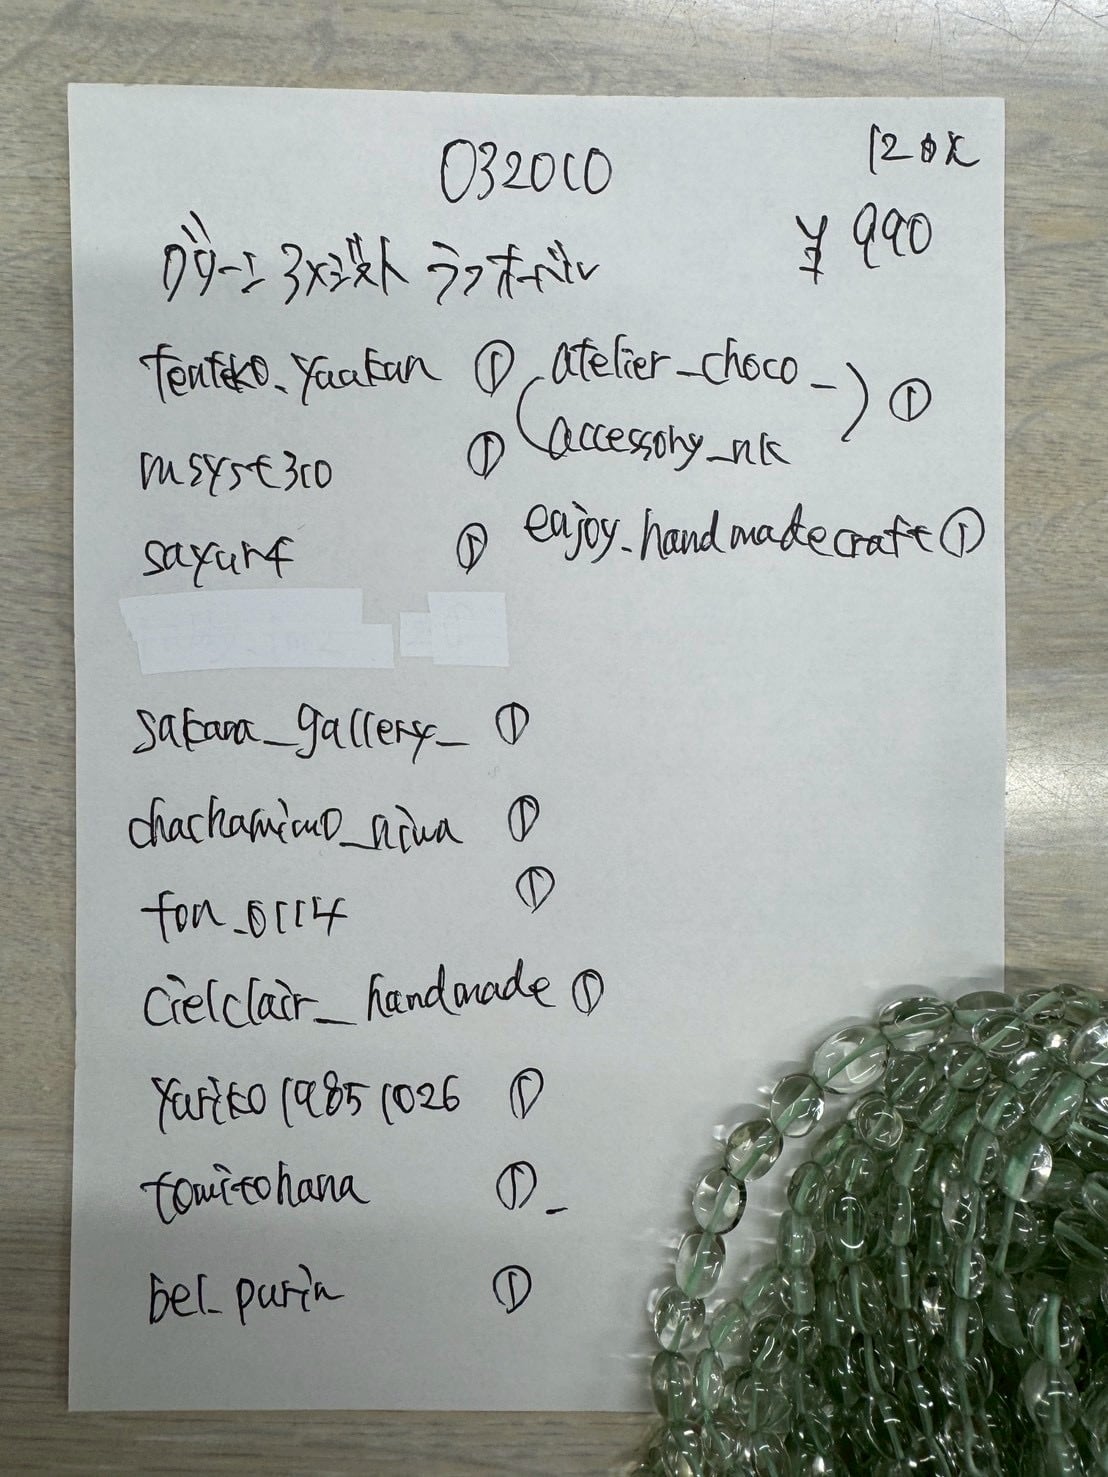 032010
120本
¥990
グリーンアメジスト ラフオーバル
tenteko_yaakan ①
msyst310 ①
sayur4 ①
sakana_gallery_ ①
chachamimo_niwa ①
fon_0114 ①
cielclair_handmade ①
yuriko19851026 ①
tomitohana ①_
bel_purin ①
(atelier_choco_
accessory_nk) ①
enjoy_handmadecraft ①